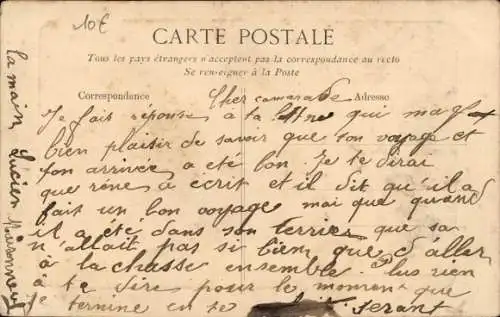 10€
CARTE POSTALE
Tous les pays étrangers n'acceptent pas la correspondance au recto
Se renseigner à la Poste
Correspondance
Adresse
Cher camarade
Je fait réponse à ta lettre qui ma fx
bien plaisir de savoir que ton voyage et
ton arrivée a eté bon. Je te dirai
que réné a écrit et il dit qu'il a
fait un bon voyage mai que quand
il a ete dans son terrier que sa
n'allait pas si bien que d'aller
à la chasse ensemble. Plus rien
à te dire pour le moment que
je termine en te serant
la main, Lucien